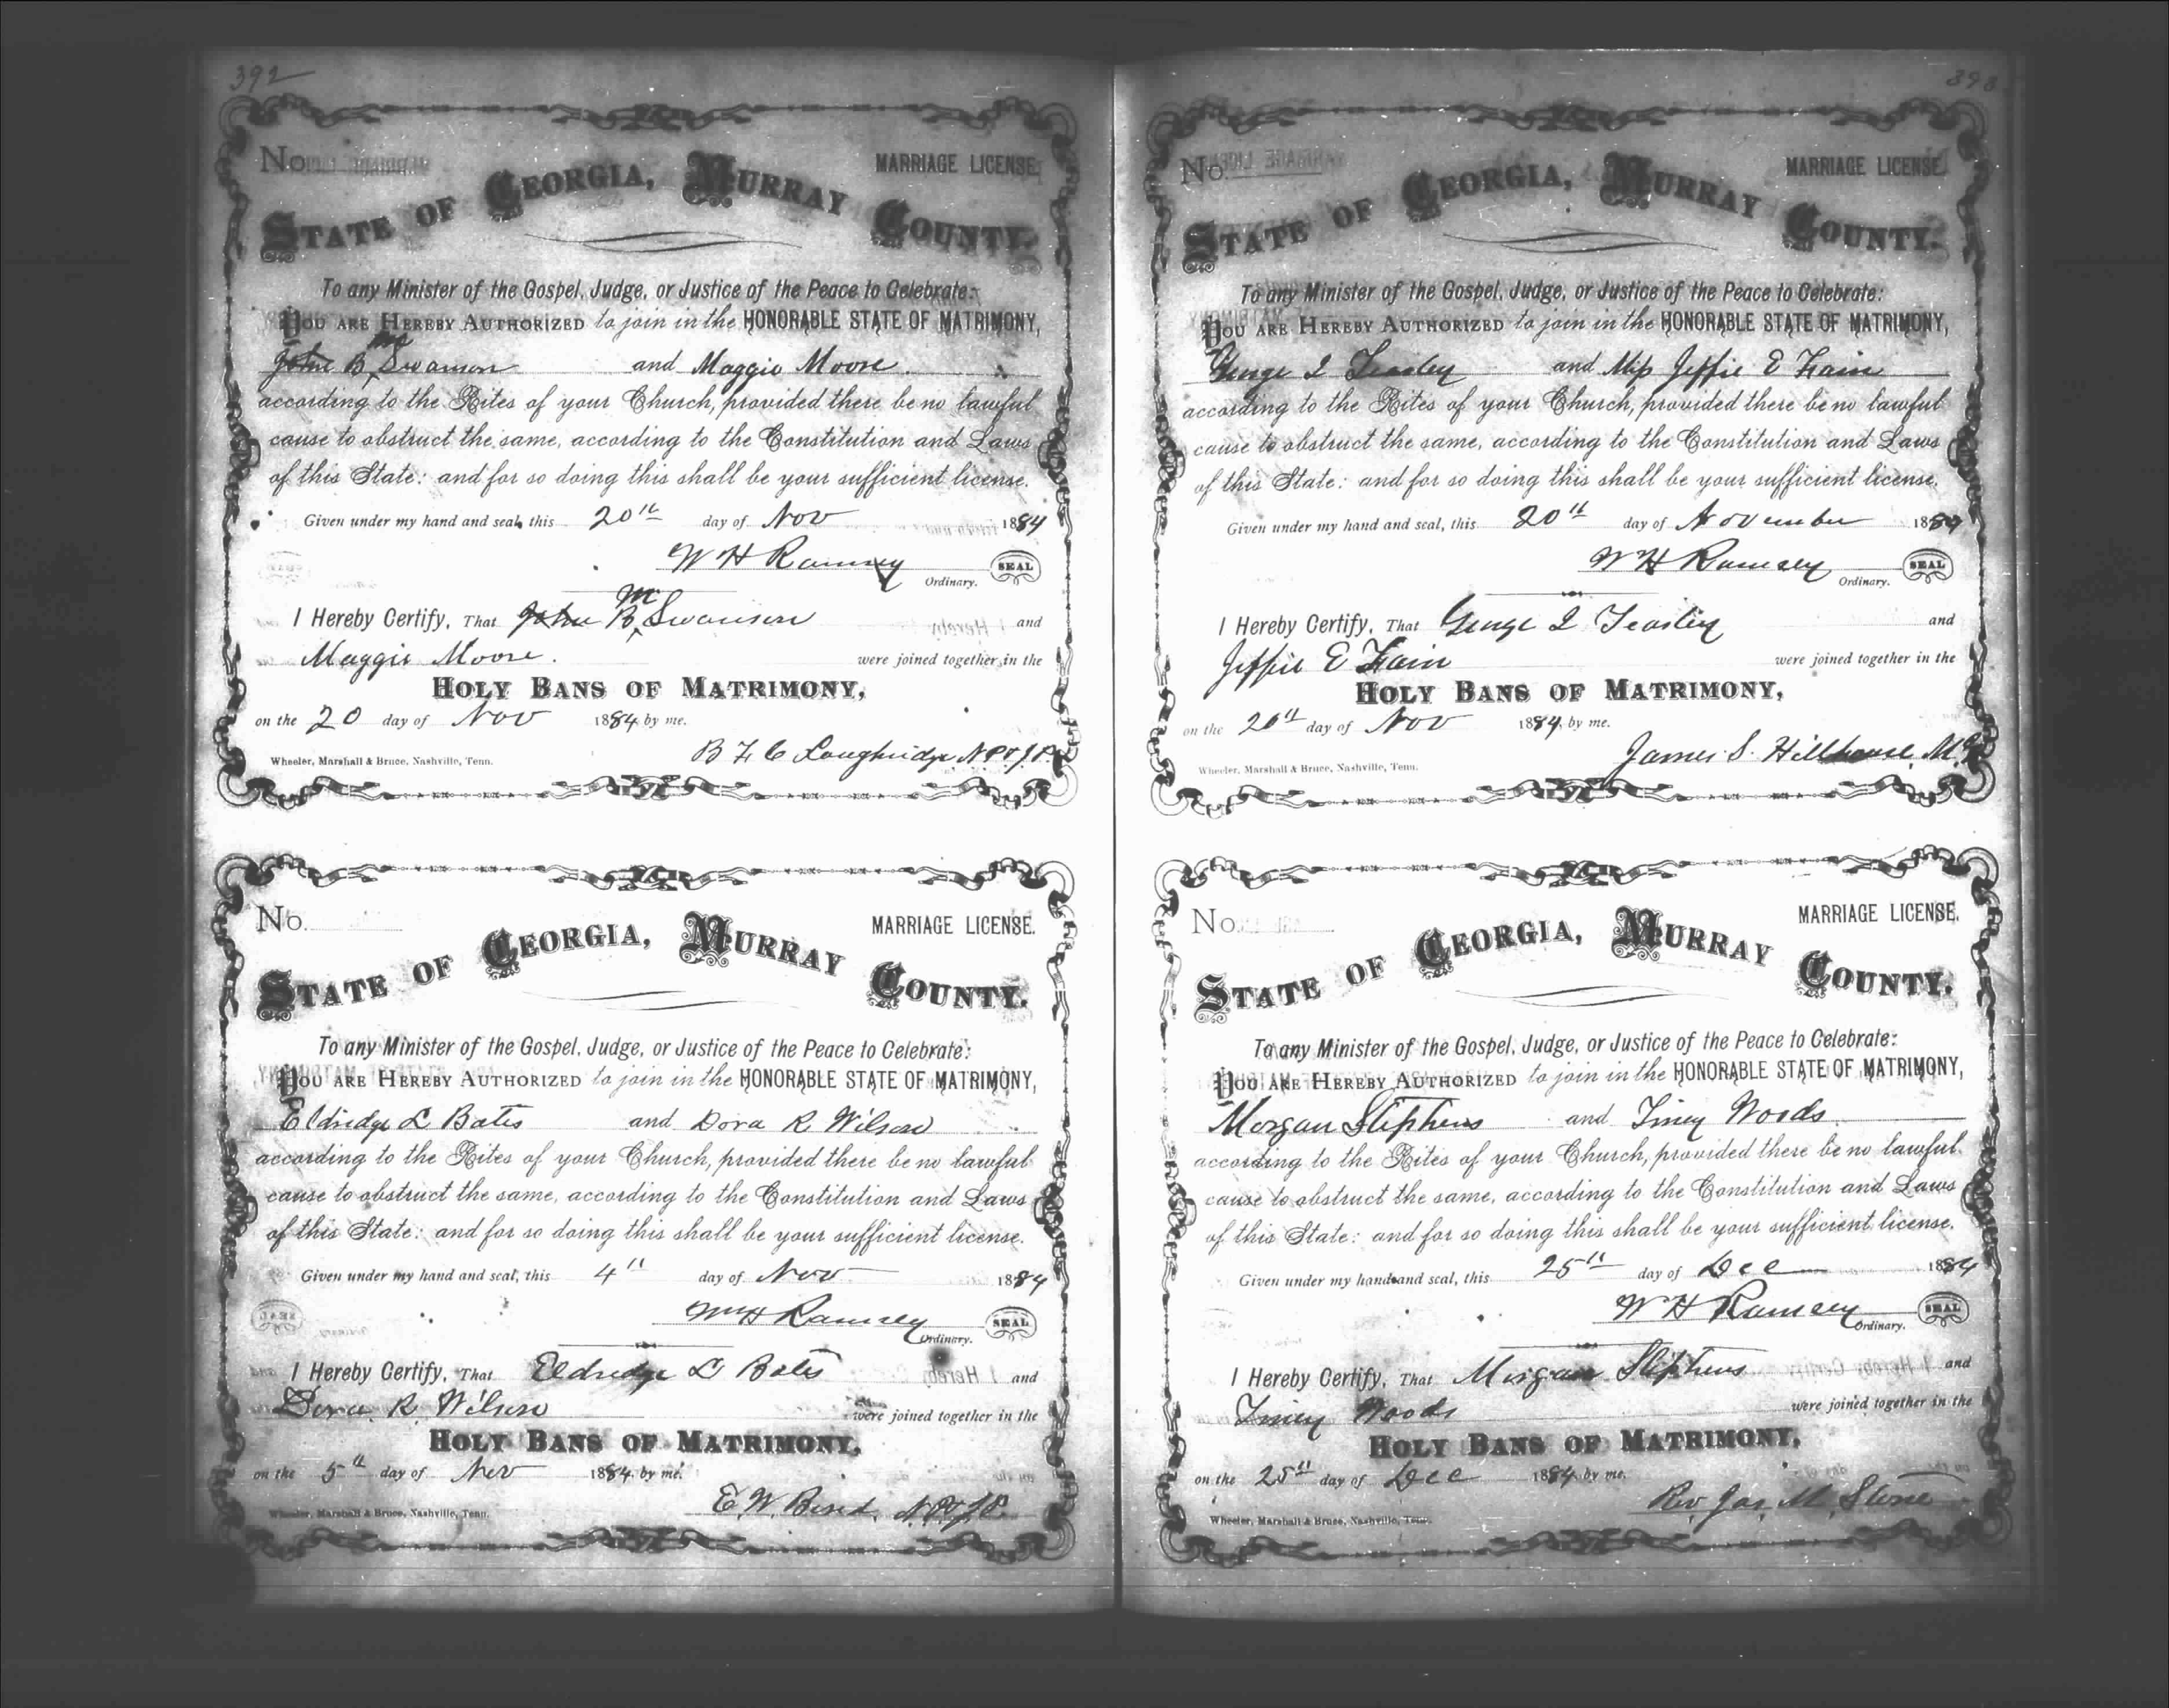 392
No.
MARRIAGE LICENSE.
STATE OF GEORGIA, MURRAY COUNTY.
To any Minister of the Gospel, Judge, or Justice of the Peace to Celebrate:
YOU ARE HEREBY AUTHORIZED to join in the HONORABLE STATE OF MATRIMONY,
M
John B Swanson and Maggie Moore.
according to the Rites of your Church, provided there be no lawful
cause to obstruct the same, according to the Constitution and Laws
of this State: and for so doing this shall be your sufficient license.
Given under my hand and seal, this 20th day of Nov 1884
W H Ramsey SEAL
Ordinary.
M
I Hereby Certify, That John B Swanson and
Maggie Moore. were joined together in the
HOLY BANS OF MATRIMONY,
on the 20 day of Nov 1884 by me.
B F C Loughridge N P & J P.
Wheeler, Marshall & Bruce, Nashville, Tenn.
No.
MARRIAGE LICENSE.
STATE OF GEORGIA, MURRAY COUNTY.
To any Minister of the Gospel, Judge, or Justice of the Peace to Celebrate:
YOU ARE HEREBY AUTHORIZED to join in the HONORABLE STATE OF MATRIMONY,
Eldredge L Bates and Dora R Wilson
according to the Rites of your Church, provided there be no lawful
cause to obstruct the same, according to the Constitution and Laws
of this State: and for so doing this shall be your sufficient license.
Given under my hand and seal, this 4th day of Nov 1884
Wm H Ramsey SEAL
Ordinary.
I Hereby Certify, That Eldredge L Bates and
Dora R. Wilson were joined together in the
HOLY BANS OF MATRIMONY,
on the 5th day of Nov 1884 by me.
E. W. N. P. & J. P.
Wheeler, Marshall & Bruce, Nashville, Tenn.
393
No.
MARRIAGE LICENSE.
STATE OF GEORGIA, MURRAY COUNTY.
To any Minister of the Gospel, Judge, or Justice of the Peace to Celebrate:
YOU ARE HEREBY AUTHORIZED to join in the HONORABLE STATE OF MATRIMONY,
George I Teasley and Miss Jeffie E Fain
according to the Rites of your Church, provided there be no lawful
cause to obstruct the same, according to the Constitution and Laws
of this State: and for so doing this shall be your sufficient license.
Given under my hand and seal, this 20th day of November 1884
W H Ramsey SEAL
Ordinary.
I Hereby Certify, That George I Teasley and
Jeffie E Fain were joined together in the
HOLY BANS OF MATRIMONY,
on the 20th day of Nov 1884 by me.
James S. Hillhouse, M.G.
Wheeler, Marshall & Bruce, Nashville, Tenn.
No.
MARRIAGE LICENSE.
STATE OF GEORGIA, MURRAY COUNTY.
To any Minister of the Gospel, Judge, or Justice of the Peace to Celebrate:
YOU ARE HEREBY AUTHORIZED to join in the HONORABLE STATE OF MATRIMONY,
Morgan Stephens and Tiney Woods
according to the Rites of your Church, provided there be no lawful
cause to obstruct the same, according to the Constitution and Laws
of this State: and for so doing this shall be your sufficient license.
Given under my hand and seal, this 25th day of Dec 1884
W H Ramsey SEAL
Ordinary.
I Hereby Certify, That Morgan Stephens and
Tiney Woods were joined together in the
HOLY BANS OF MATRIMONY,
on the 25th day of Dec 1884 by me.
Rev. Jas. M. Stone
Wheeler, Marshall & Bruce, Nashville, Tenn.